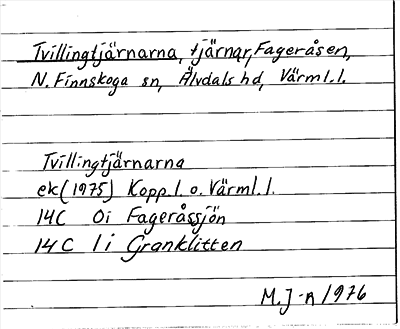 Tvillingtjärnarna, tjärnar, Fageråsen,
N. Finnskoga sn, Älvdals hd, Värml.l.
Tvillingtjärnarna
ek (1975) Kopp.l. o. Värml.l.
14C 0i Fageråssjön
14C 1i Granklitten
M.J-n 1976